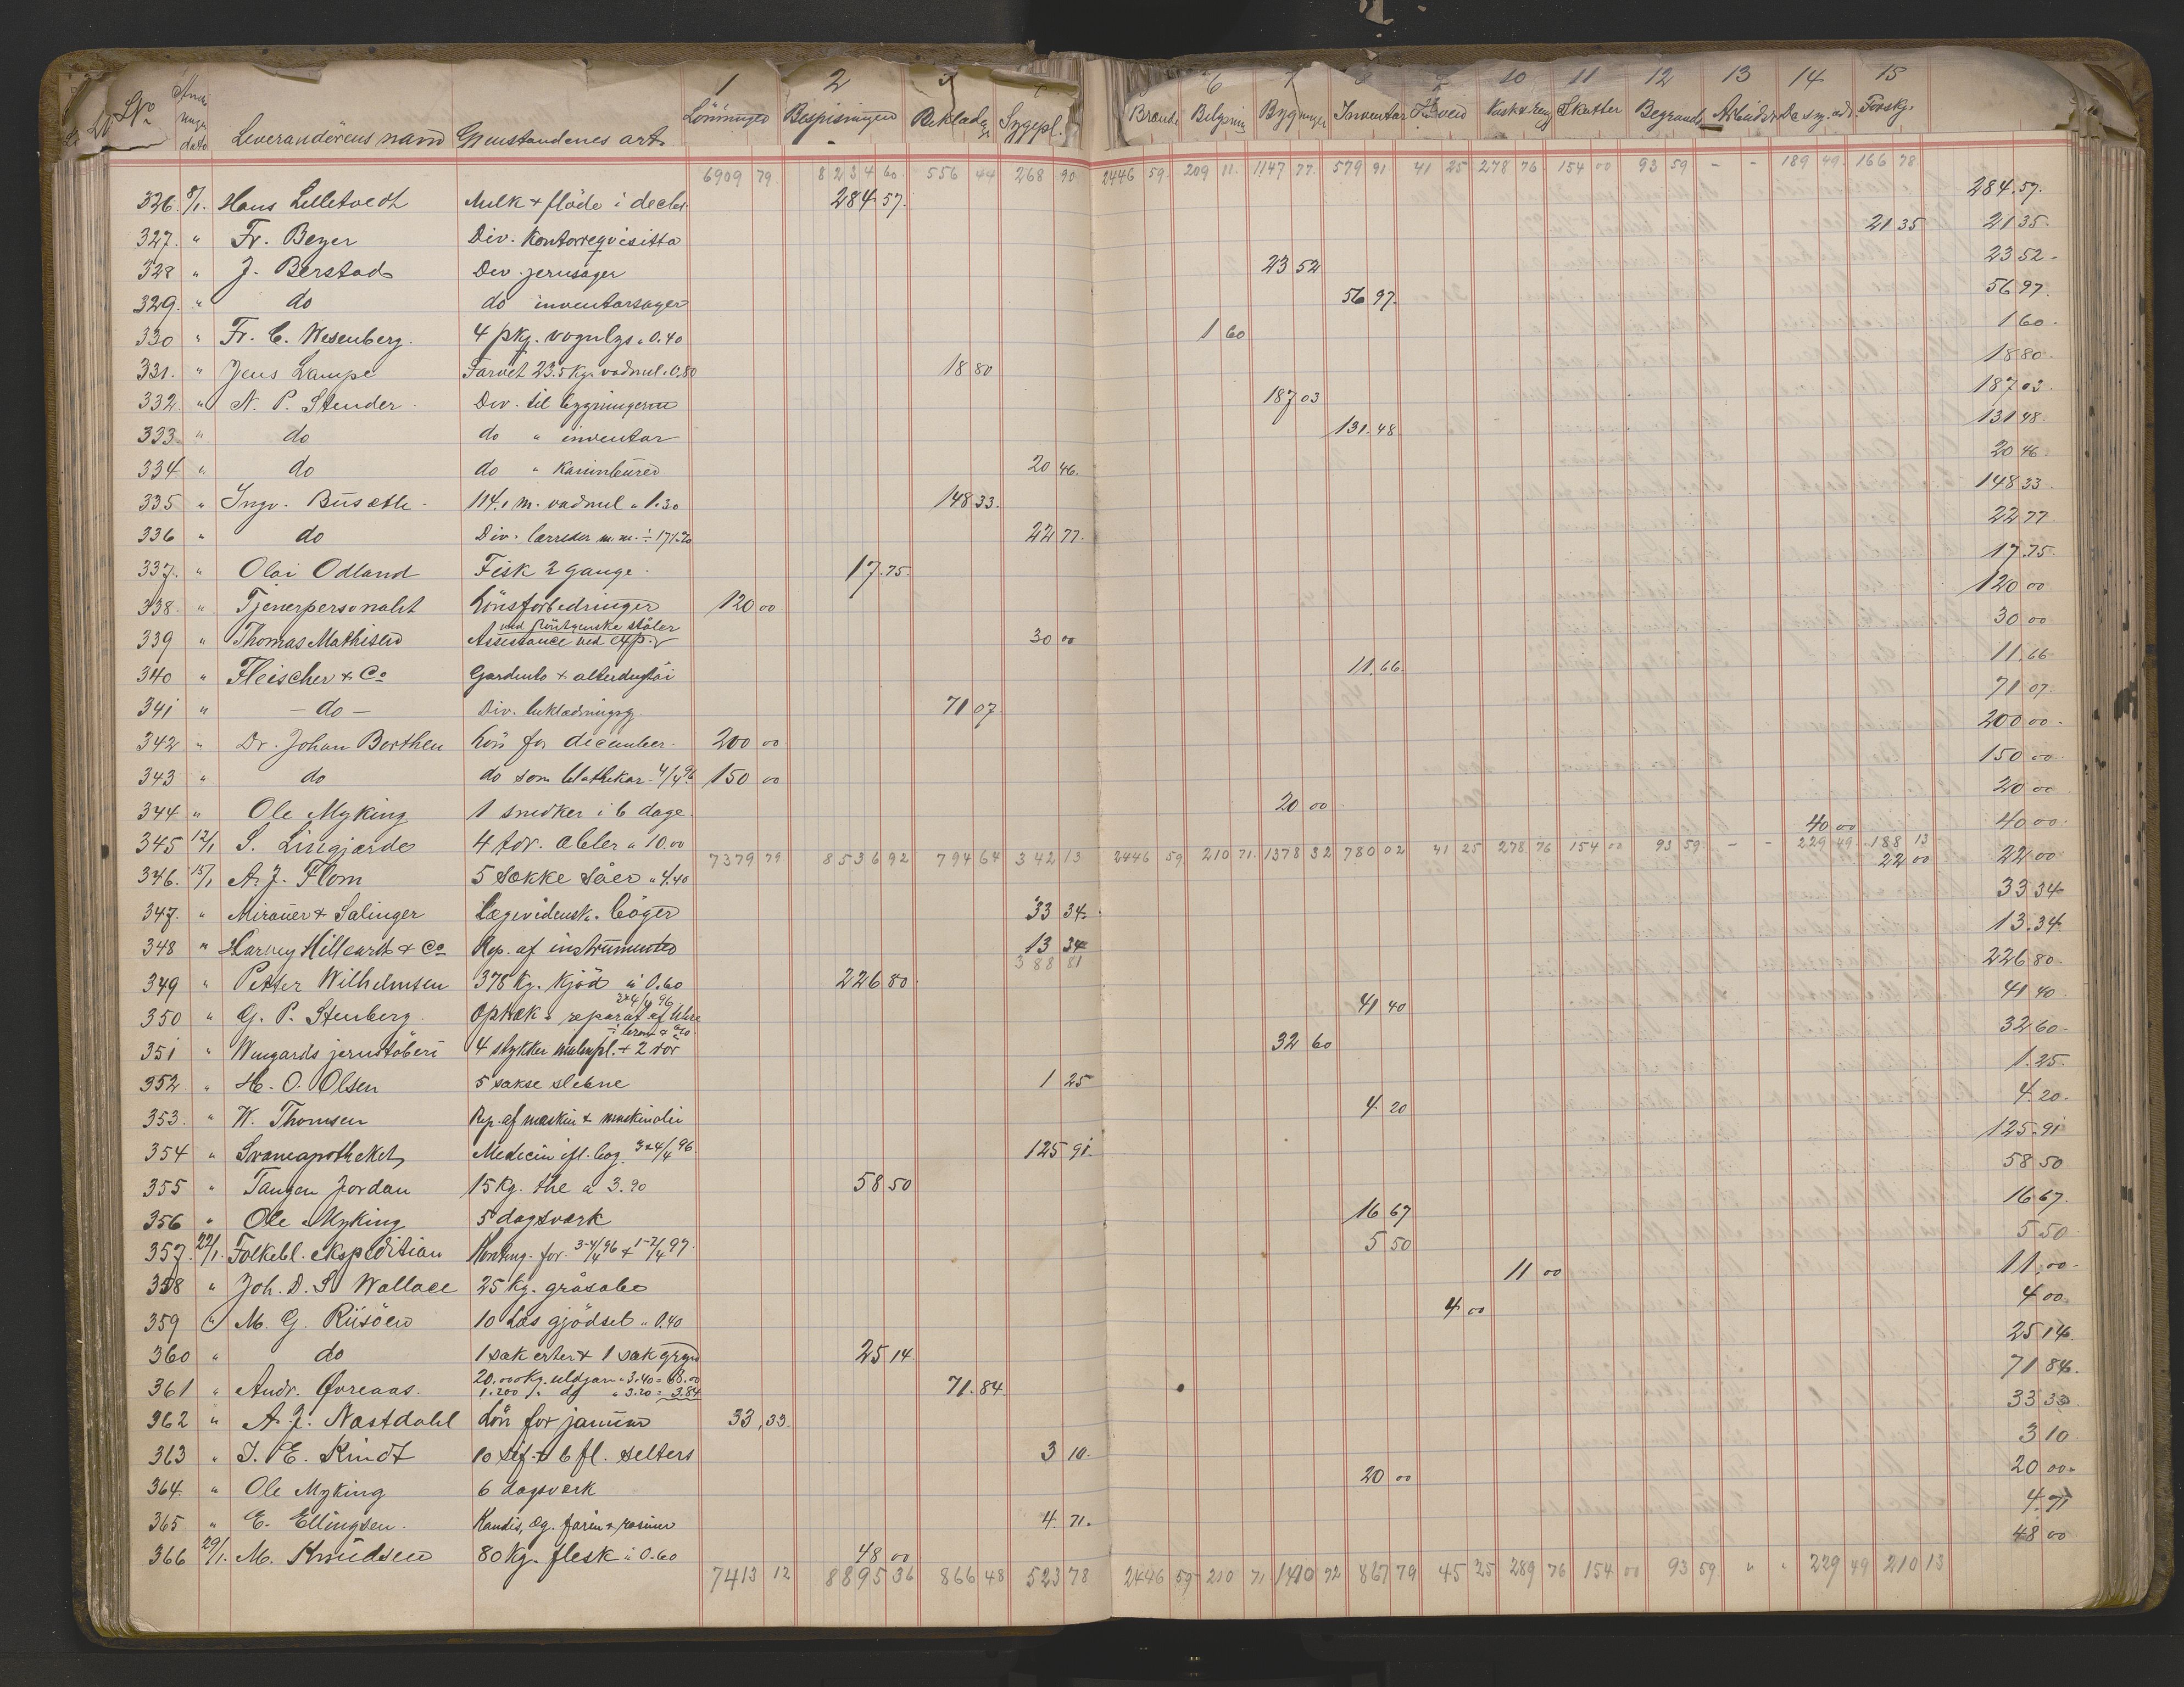 1 2 3 6 7 8 10 11 12 13 14 15
No dato Leverandörens navn Genstandenes art Lönninger Bespisningen Beklædn. Sygepl. Brænde Belysning Bygninger Inventar Skatter Forskj.
6909 79 8234 60 556 44 268 90 2446 59 209 11 1147 77 579 91 41 25 278 76 154 00 93 59 - - 189 49 166 78
326. 8/1. Hans Lilletvedt Melk & flöde i decbr. 284 57 284 57
327. " Fr. Beyer Div. Kontorreqvisitta 21 35 21 35
328 " J. Berstad Div. jernsager 23 52 23 52
329. " do do inventarsager 56 97 56 97
330 " Fr. C. Wesenberg. 4 pkg. vognlys " 0.40 1 60 1 60
331. " Jens Lampe Farvet 23.5 kg. vadmel " 0.80 18 80 18 80
332. " N. P. Stender Div. til bygningerne 187 03 187 03
333. " do do " inventar 131 48 131 48
334. " do do " 20 46 20 46
335 " Ingv. Buseth 114.1 m. vadmel " 1.30 148 33 148 33
336 " do Div. lærreder m.m. ÷ 171.20 22 77 22 77
337. " Olai Odland Fisk 2 gange. 17.75 17.75
338. " Tjenerpersonalet Lönsforbedringer 120 00 120 00
339 " Thomas Mathisen Assistance ved exp. med Röntgenske stråler 30 00 30 00
340 " Fleischer & Co Gardentö & alterdugtöi 11.66 11.66
341 " - do - Div. beklædningsg. 71 07 71 07
342 " Dr. Johan Borthen Lön for december. 200 00 200 00
343 " do do som 4/4 96 150 00 150 00
344 " Ole Myking 1 snedker i 6 dage. 20 00 20 00
345 12/1 S. Lingjærde 4 tdr. æbler " 10.00 40 00 40 00
7379 79 8536 92 794 64 342 13 2446 59 210 71 1378 32 780 02 41 25 278 76 154 00 93 59 - - 229 49 188 13
346. 15/1 A. J. Flom 5 sække såer " 4.40 22 00 22 00
347. " Mirauer & Salinger Lægevidensk. böger 33 34 33 34
348 " Harvey Hilleard & Co Rep. af instrumenter 13 34 13.34
388 81
349 " Petter Wilhelmsen 378 kg. kjöd à 0.60 226 80 226 80
350 " G. P. Stenberg. Optræk & reparat. af Uhre 3&4/4 96 41 40 41 40
351 " Wingaards jernstöberi 4 stykker & 2 rör 32 60 32 60
352 " H. O. Olsen 5 sakse slebne 1 25 1.25
353. " W. Thomsen Rep. af maskin & maskinolie 4 20 4.20
354 " Svaneapotheket, Medicin ifl. bog. 3&4/4 96 125 91 125.91
355 " Tangen Jordan 15 kg. the a 3.90 58 50 58 50
356 " Ole Myking 5 dagsværk 16 67 16 67
357. 22/1. Folkebl. ekspedition Konting. for 3-4/4 96 & 1-2/4 97. 5 50 5 50
358 " Joh. D. S. Wallace 25 kg. gråsæbe 11 00 11.00
359 " M. G. Riisöen 10 læs gjödsel " 0.40 4 00 4 00
360 " do 1 sæk erter & 1 sæk gryn 25 14 25 14
361 " Andr. Övreaas. 20.000 kg. uldgarn " 3.40 = 68.00
1.200 " do " 3.20 = 3.84 71.84 71 84
362 " A. J. Nastdahl Lön for januar 33,33 33 33
363 " J. E. Kindt 10 sif. & 6 fl. selters 3 10 3 10
364. " Ole Myking 6 dagsværk 20 00 20 00
365 " E. Ellingsen. Kandis, æg. farin & rosiner 4.71 4.71
366 29/1. M. Knudsen 80 kg. flesk à 0.60 48 00 48 00
7413 12 8895 36 866 48 523 78 2446 59 210 71 1410 92 867 79 45 25 289 76 154 00 93 59 " " 229 49 210 13